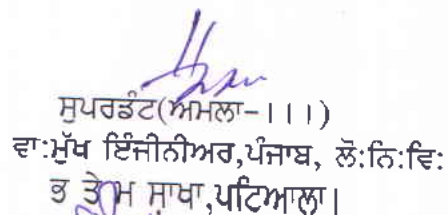 ਸੁਪਰਡੰਟ(ਅਮਲਾ-।।।)
ਵਾ:ਮੁੱਖ ਇੰਜੀਨੀਅਰ,ਪੰਜਾਬ, ਲੋ:ਨਿ:ਵਿ:
ਭ ਤੇ ਮ ਸ਼ਾਖਾ,ਪਟਿਆਲਾ|